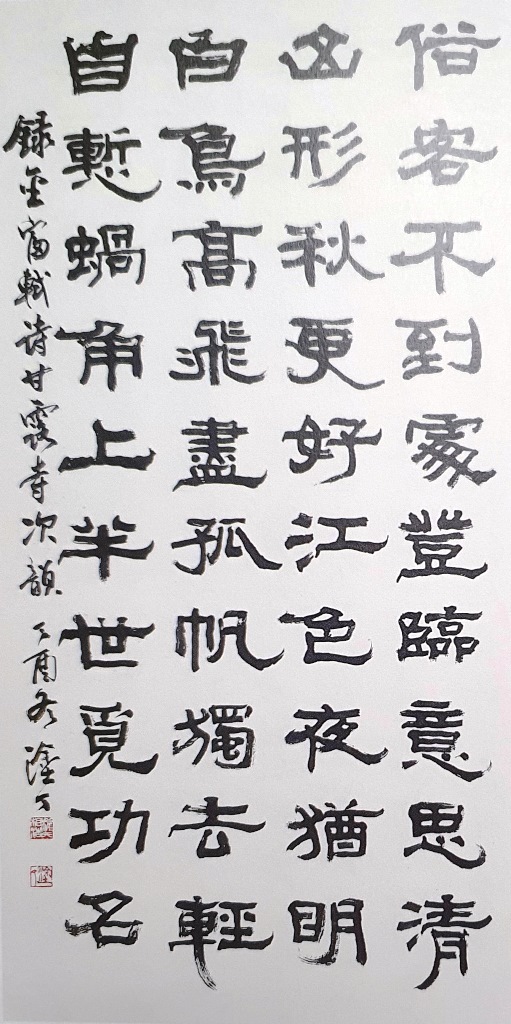 俗客不到處登臨意思清
山形秋更好江色夜猶明
白鳥高飛盡孤帆獨去輕
自慙蝸角上半世覓功名
録金富軾诗甘露寺次韻 丁酉冬